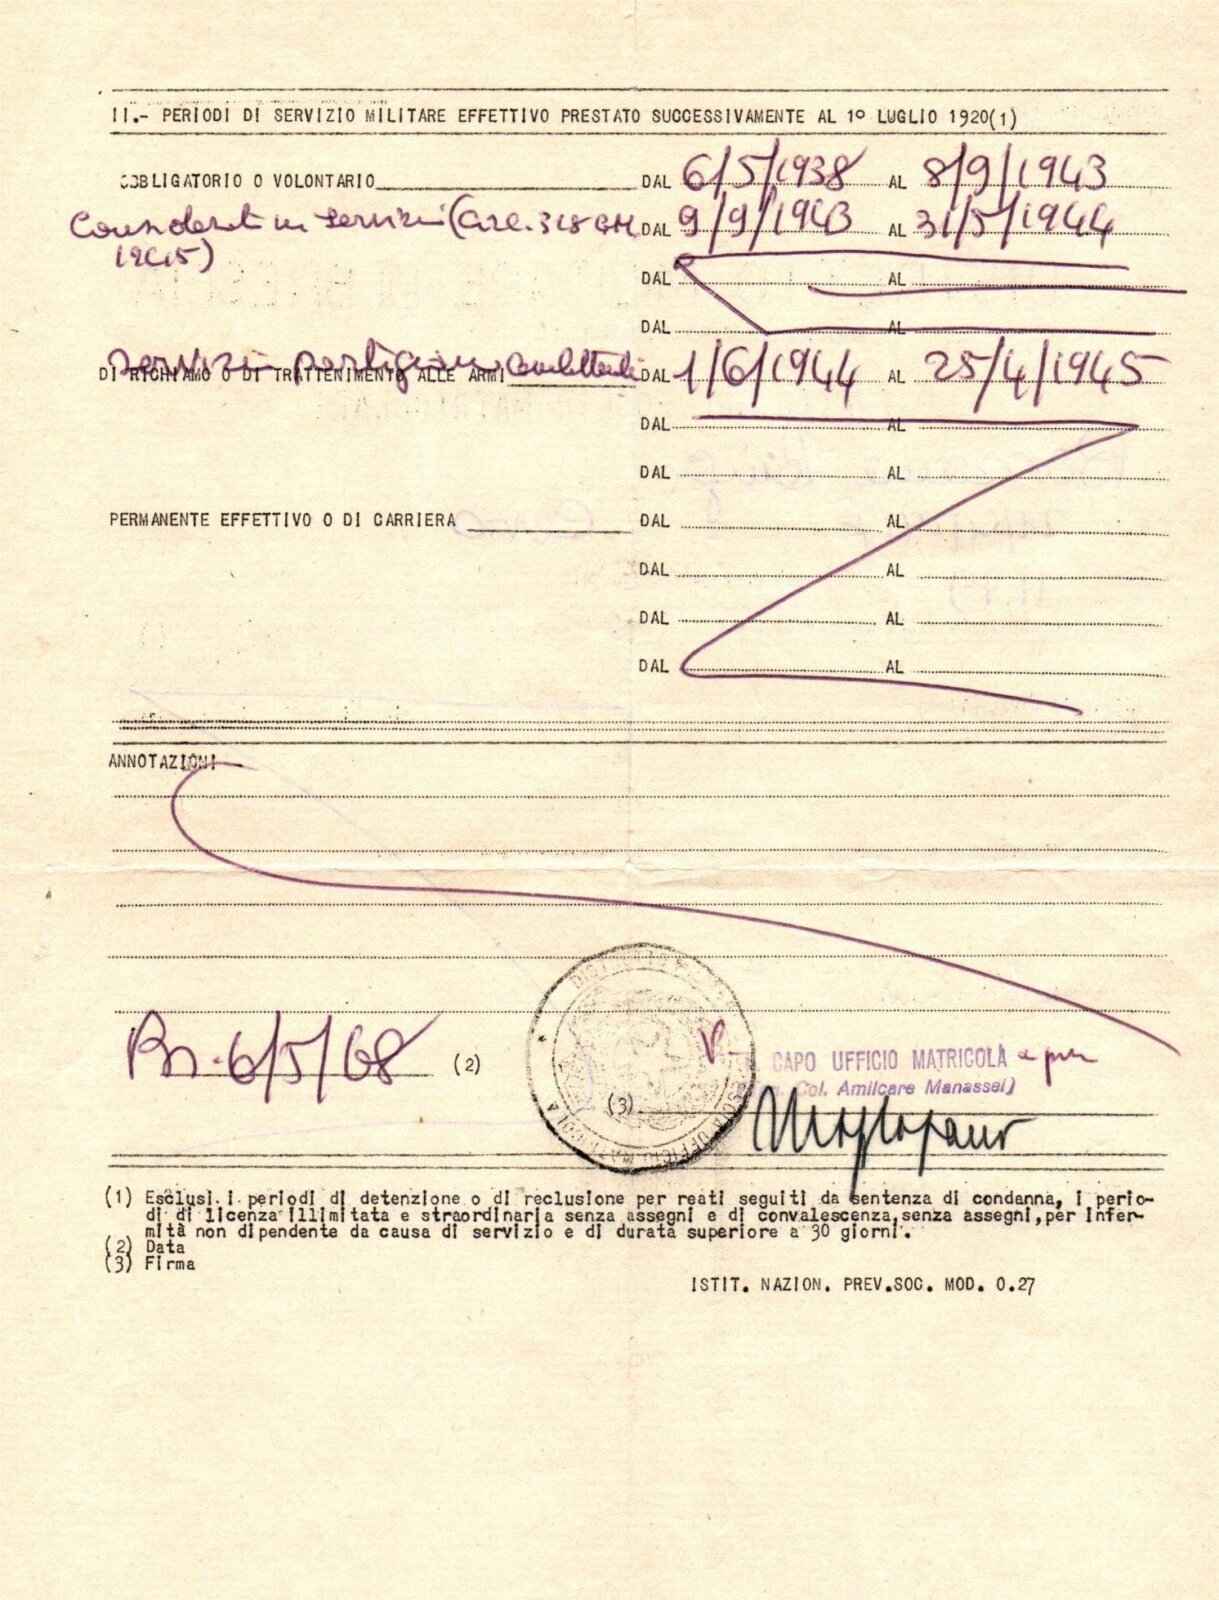 II.- PERIODI DI SERVIZIO MILITARE EFFETTIVO PRESTATO SUCCESSIVAMENTE AL 1º LUGLIO 1920(1)
OBBLIGATORIO O VOLONTARIO DAL 6/5/1938 AL 8/9/1943
in servizio (Circ. 318 GM DAL 9/9/1943 AL 31/5/1944
1945)
DAL AL
DAL AL
servizio partigiano combattente
DI RICHIAMO O DI TRATTENIMENTO ALLE ARMI DAL 1/6/1944 AL 25/4/1945
DAL AL
DAL AL
PERMANENTE EFFETTIVO O DI CARRIERA DAL AL
DAL AL
DAL AL
DAL AL
ANNOTAZIONI
6/5/68 (2)
CAPO UFFICIO MATRICOLA
Col. Amilcare Manassei)
(3)
UFFICIO MATRICOLA
(1) Esclusi i periodi di detenzione o di reclusione per reati seguiti da sentenza di condanna, i perio-
di di licenza illimitata e straordinaria senza assegni e di convalescenza, senza assegni, per infer-
mità non dipendente da causa di servizio e di durata superiore a 30 giorni.
(2) Data
(3) Firma
ISTIT. NAZION. PREV.SOC. MOD. 0.27